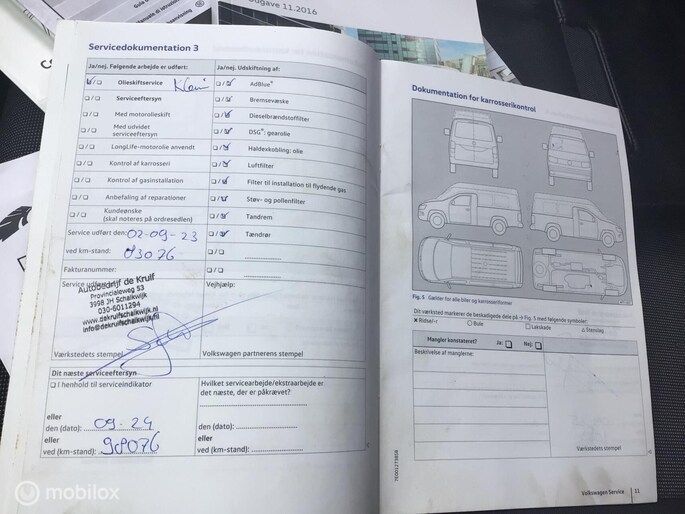 dgave 11.2016
Servicedokumentation 3
Ja/nej. Følgende arbejde er udført:
Olieskiftservice
Serviceeftersyn
Med motorolieskift
Med udvidet
serviceeftersyn
LongLife-motorolie anvendt
Kontrol af karrosseri
Kontrol af gasinstallation
Anbefaling af reparationer
Kundeønske
(skal noteres på ordresedlen)
Service udført den: 02-09-23
ved km-stand: 83076
Fakturanummer:
Service udført
Autobedrijf de Kruif
Provincialeweg 53
3998 JH Schalkwijk
030-6011294
www.dekruifschalkwijk.nl
info@dekruifschalkwijk.nl
Værkstedets stempel
Ja/nej. Udskiftning af:
AdBlue®
Bremsevæske
Dieselbrændstoffilter
DSG®: gearolie
Haldexkobling: olie
Luftfilter
Filter til installation til flydende gas
Støv- og pollenfilter
Tandrem
Tændrør
Vejhjælp:
Volkswagen partnerens stempel
Dit næste serviceeftersyn
I henhold til serviceindikator
eller
den (dato): 09-24
eller
ved (km-stand): 98076
Hvilket servicearbejde/ekstraarbejde er
det næste, der er påkrævet?
eller
den (dato):
eller
ved (km-stand):
Dokumentation for karrosserikontrol
Fig. 5 Gælder for alle biler og karrosseriformer
Dit værksted markerer de beskadigede dele på → Fig. 5 med følgende symboler:
× Ridse/-r ○ Bule □ Lakskade △ Stenslag
Mangler konstateret? Ja: Nej:
Beskrivelse af manglerne:
Værkstedets stempel
Volkswagen Service 11
mobilox